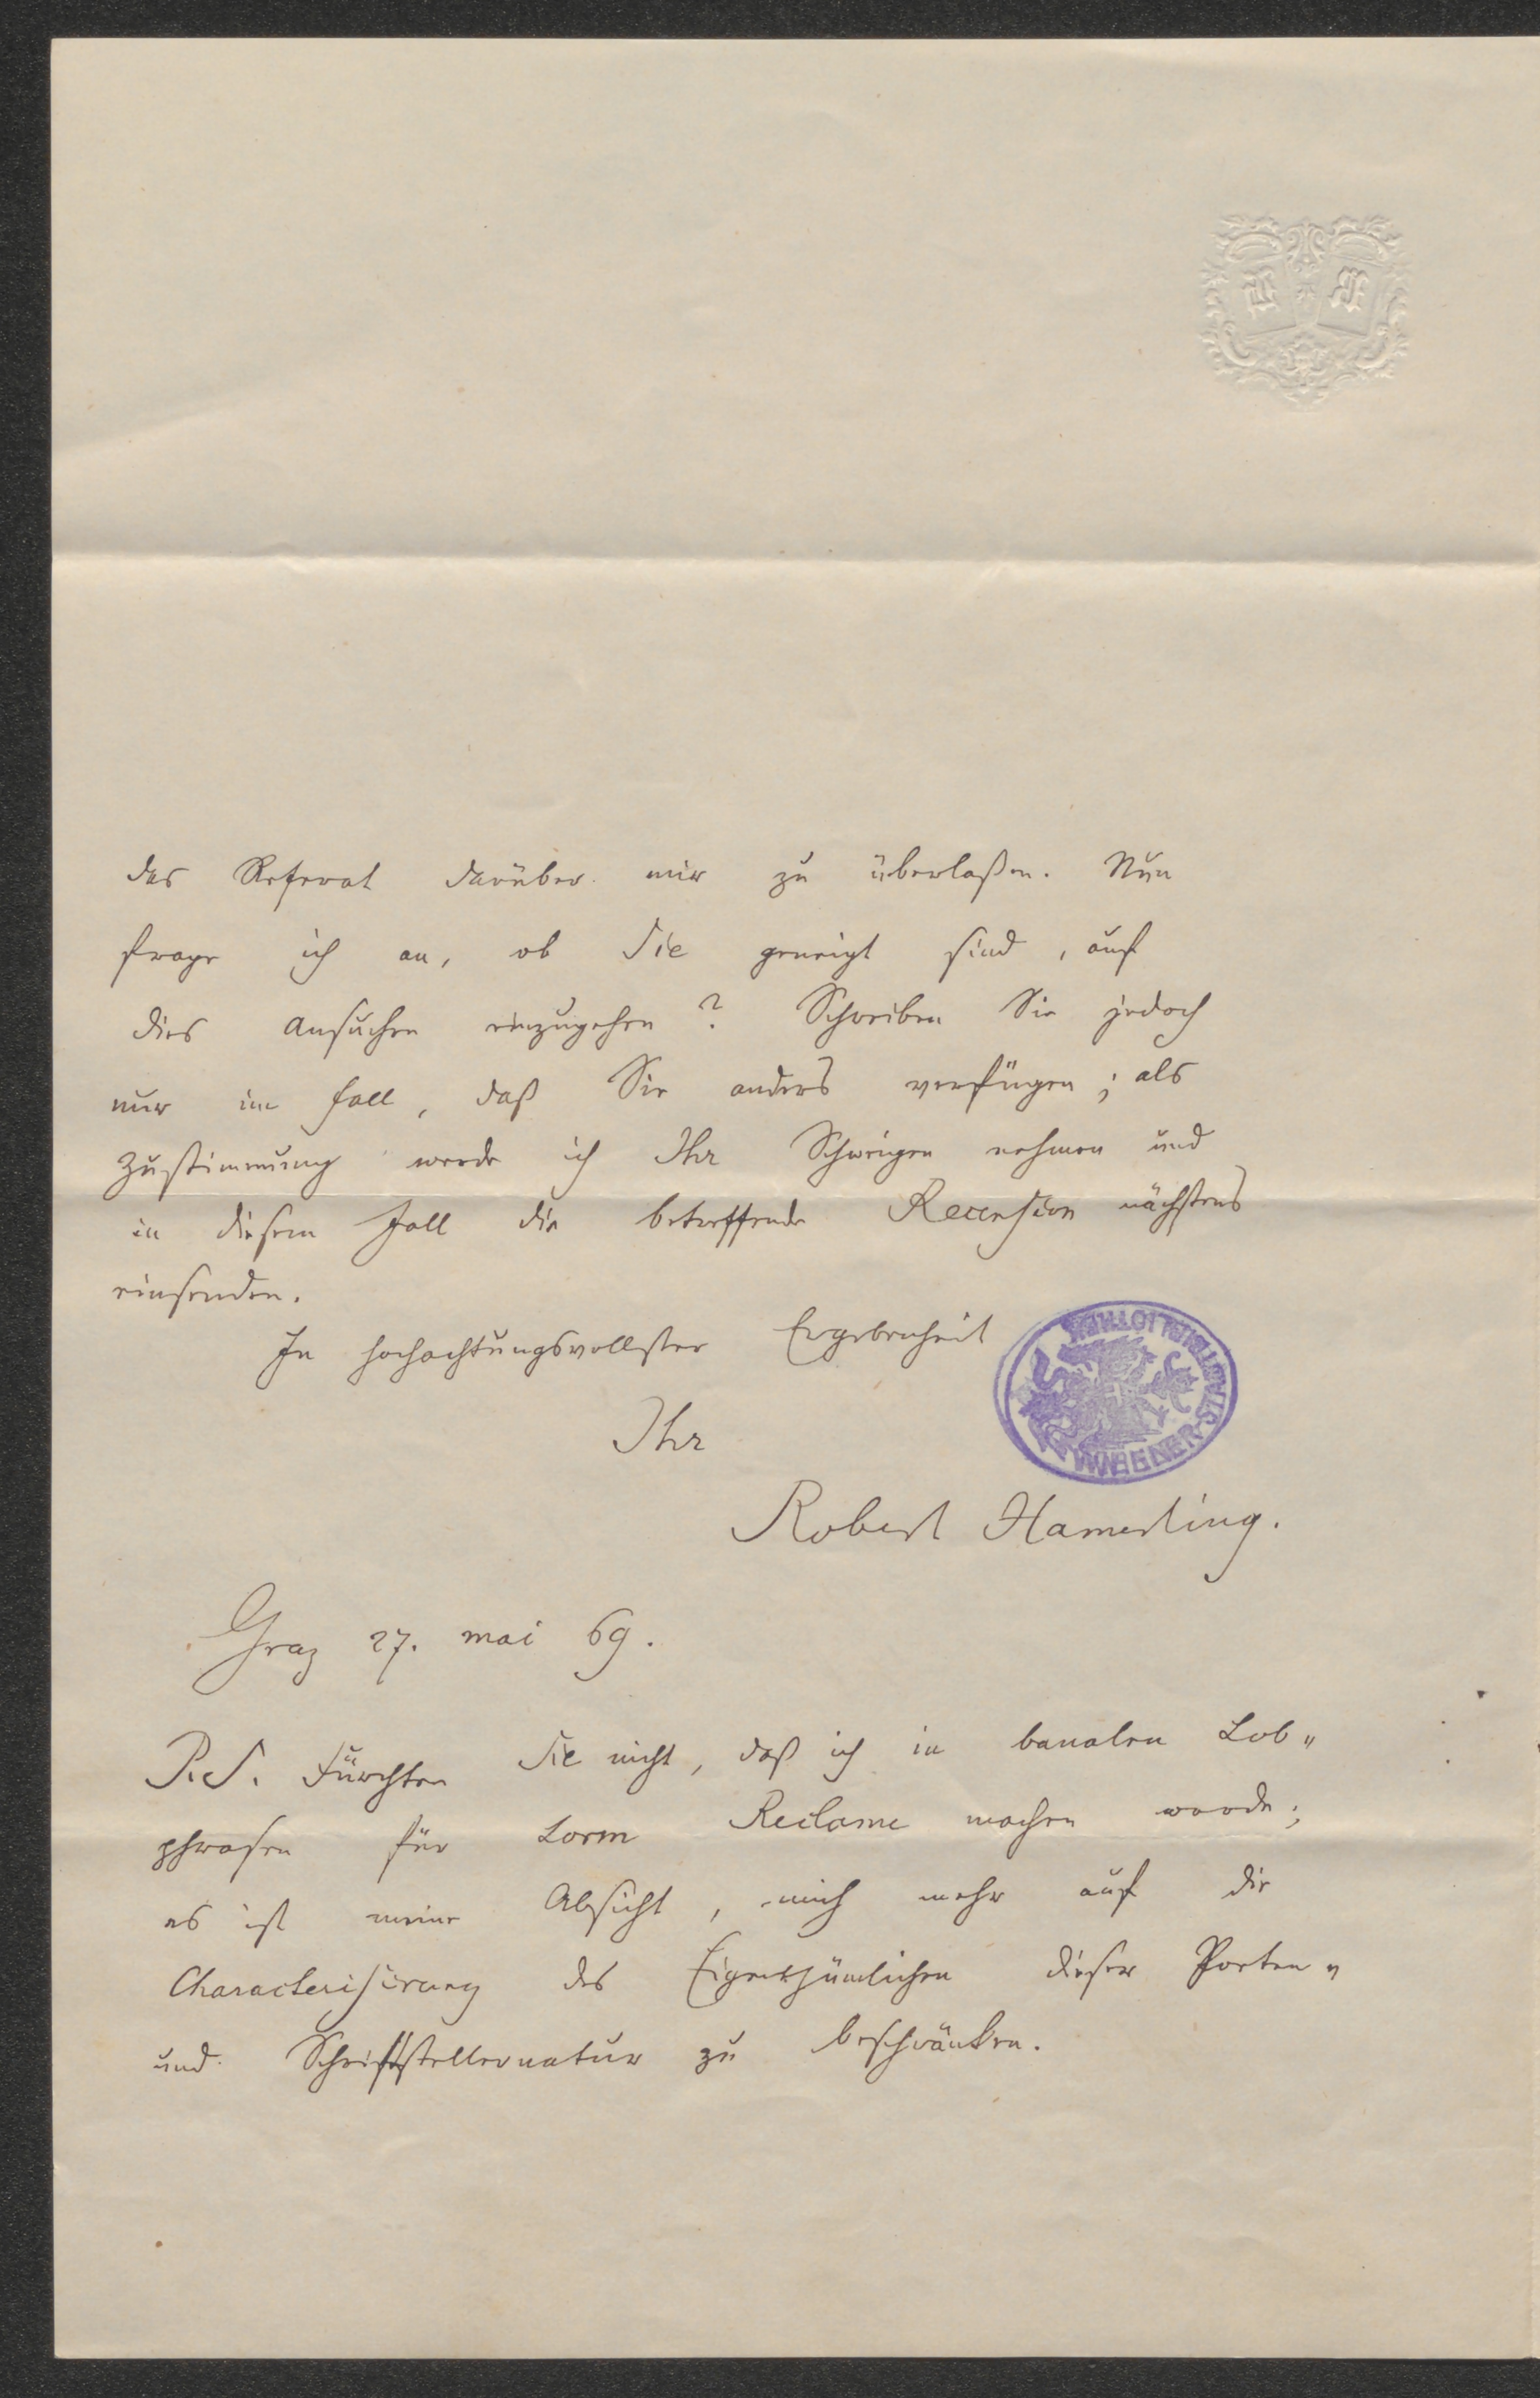 das Referat darüber mir zu überlaßen. Nun
frage ich an, ob Sie geneigt sind, auf
dies Ansuchen einzugehen? Schreiben Sie jedoch
nur im Fall, daß Sie anders verfügen; als
Zustimmung werde ich Ihr Schweigen nehmen und
in diesem Fall die betreffende Recension nächstens
einsenden.
In hochachtungsvollster Ergebenheit
WIENER-STADTBIBLIOTHEK
Ihr
Robert Hamerling.
Graz 27. Mai 69.
P.S. Fürchten Sie nicht, daß ich in banalen Lob„
phrasen für Lorm Reclame machen werde;
es ist meine Absicht, mich mehr auf die
Characterisirung des Eigenthümlichen dieser Poeten„
und Schriftstellernatur zu beschränken.